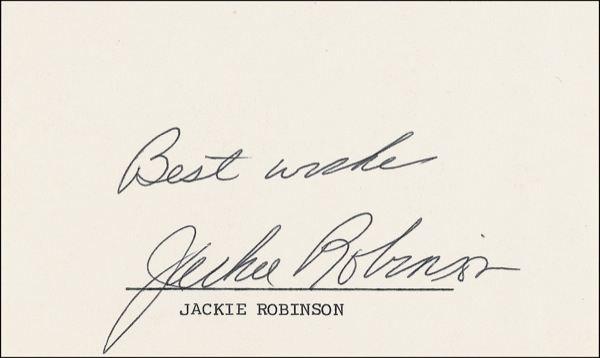 Best wishes
Jackie Robinson
JACKIE ROBINSON